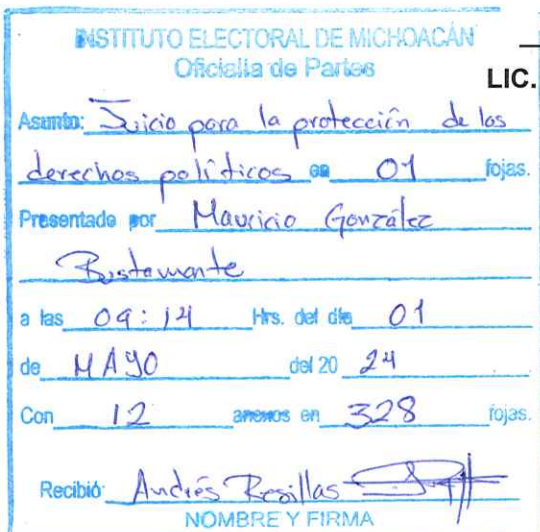 INSTITUTO ELECTORAL DE MICHOACÁN
Oficialia de Partes
LIC.
Asunto: Juicio para la protección de los
derechos políticos en 01 fojas.
Presentado por Mauricio González
Bustamante
a las 09:14 Hrs. del día 01
de MAYO del 20 24
Con 12 anexos en 328 fojas.
Recibió: Andrés Resillas
NOMBRE Y FIRMA